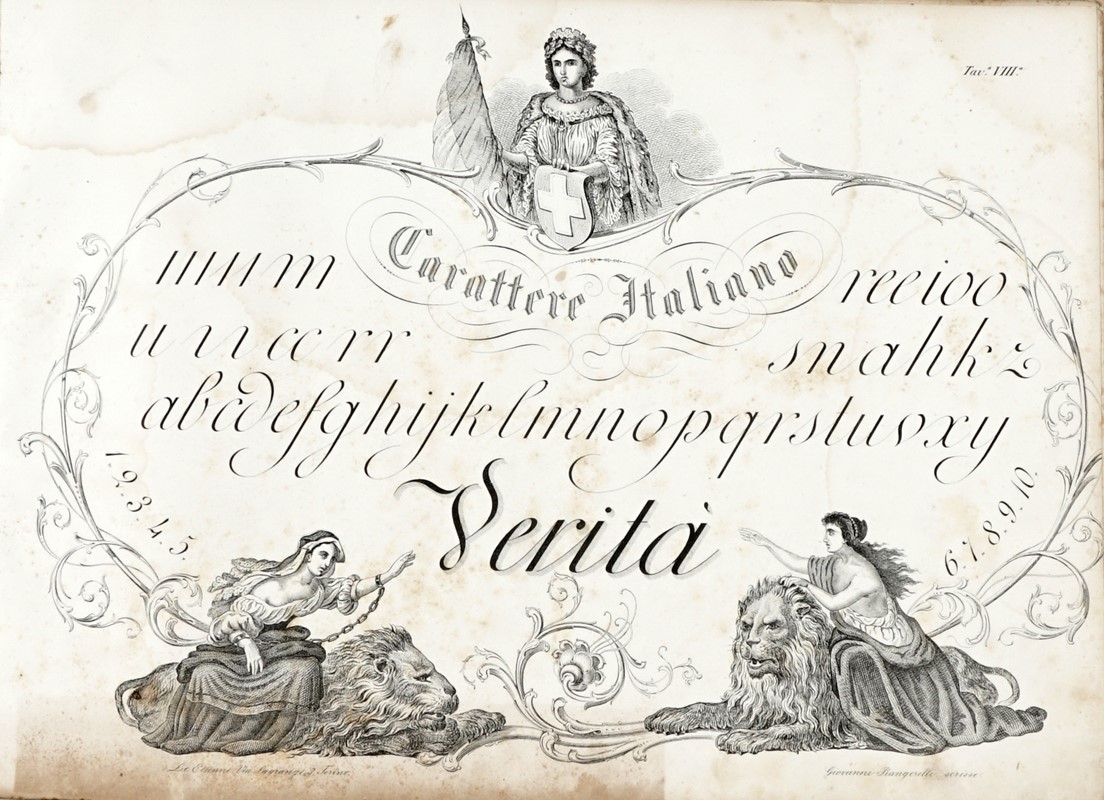 Tav.ª VIII.ª
Carattere Italiano
reeioo
cc rr
snahkz
abcdefghijklmnopqrstuvxy
1. 2. 3. 4. 5.
Verità
6. 7. 8. 9. 10.
Via Lagrange, Torino.
Giovanni scrisse